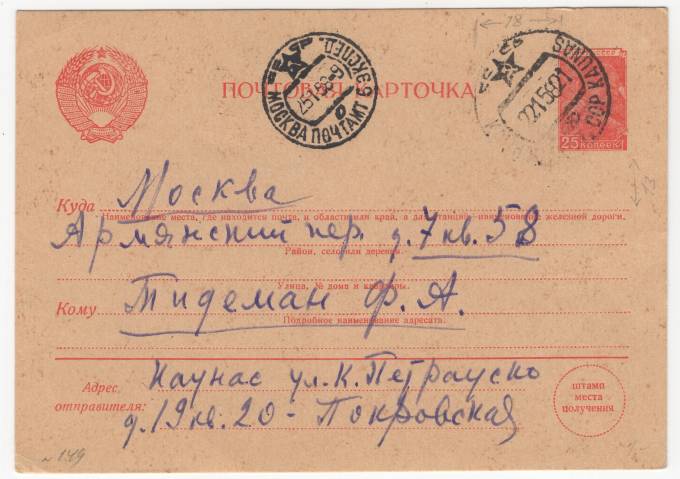 18
ПОЧТОВАЯ КАРТОЧКА
МОСКВА ПОЧТАМТ 9 ЭКСПЕД.
25156
ССР KAUNAS
22156 21
25 КОПЕЕК
Куда Москва
Наименование места, где находится почта, и области или края, а для станций—наименование железной дороги.
Армянский пер. д. 7 кв. 58
Район, село или деревня.
Улица, № дома и квартиры.
Кому Тидеман Ф. А.
Подробное наименование адресата.
Адрес отправителя: Каунас ул. К. Петрауско
д. 19 кв. 20 - Покровская
штамп
места
получения
~ 149